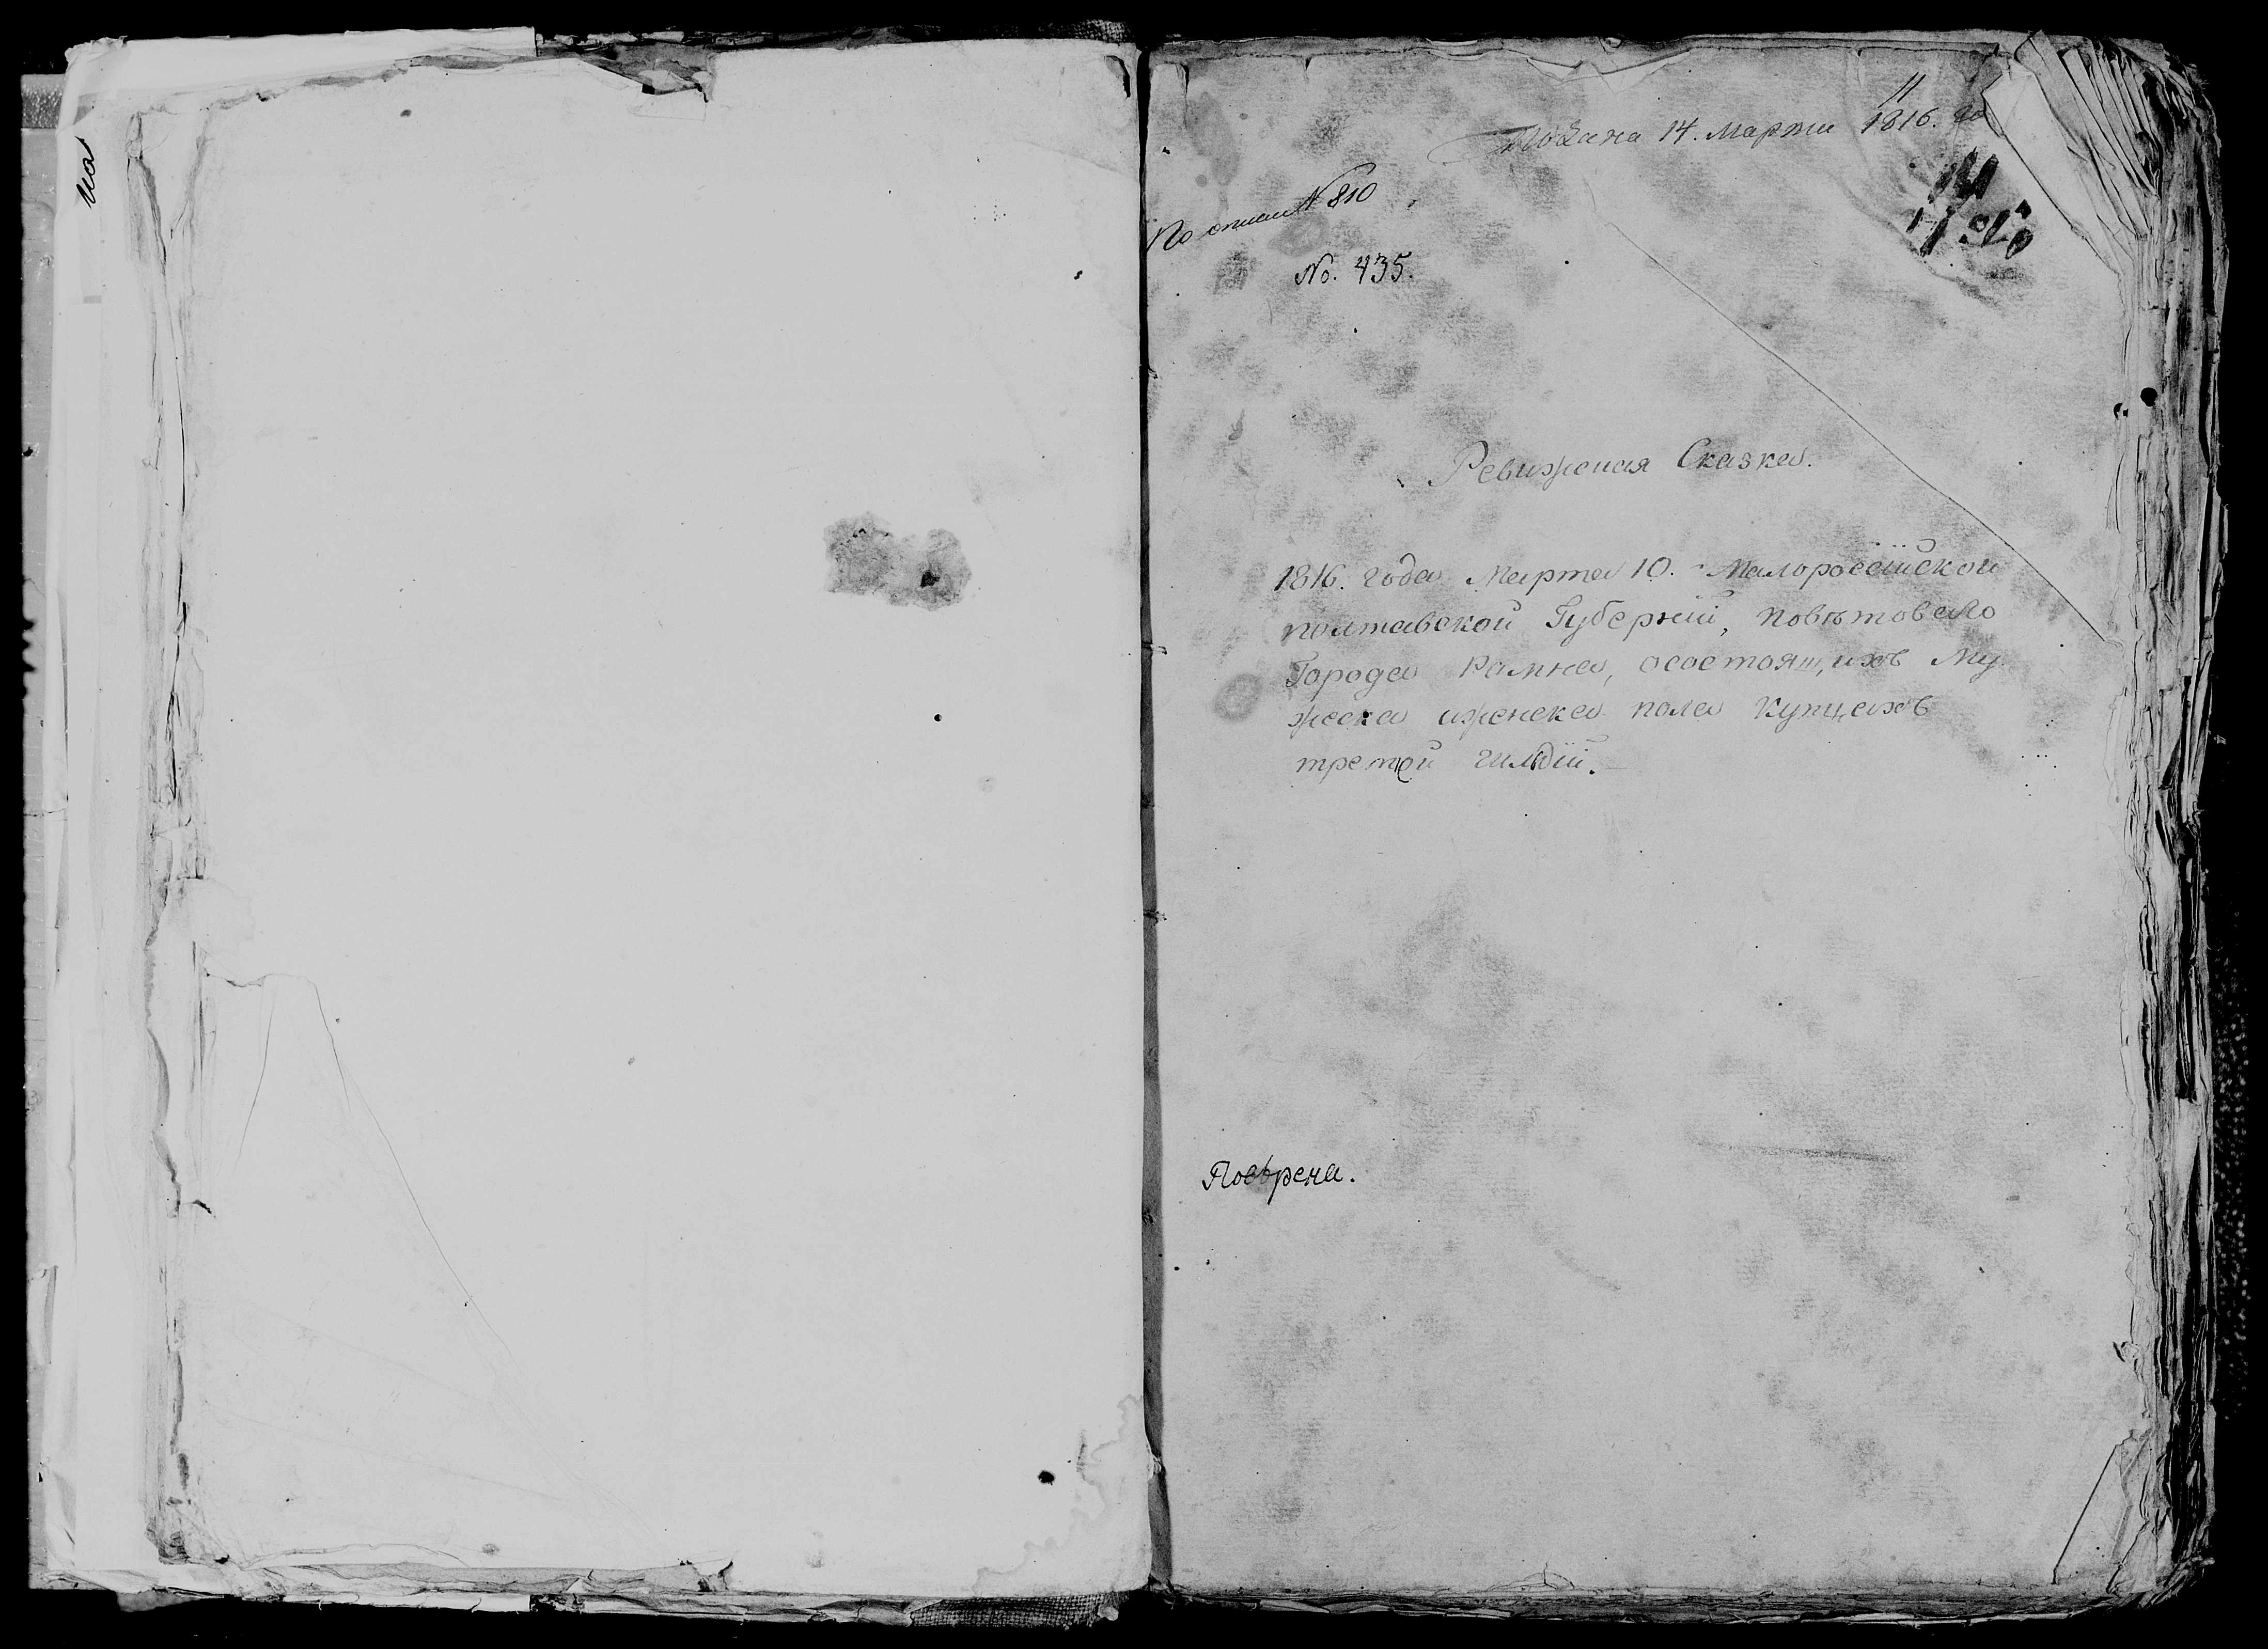 11
Подана 14. Марта 1816. го
По описи N 810
No. 435.
Ревижская Сказка.
1816. года Марта 10. Малороссійской
полтавской Губерніи, повѣтоваго
Города Ромна, осостоящихъ Му
жеска иженска пола Купцахъ
третой гильдіи.
Повѣрена.